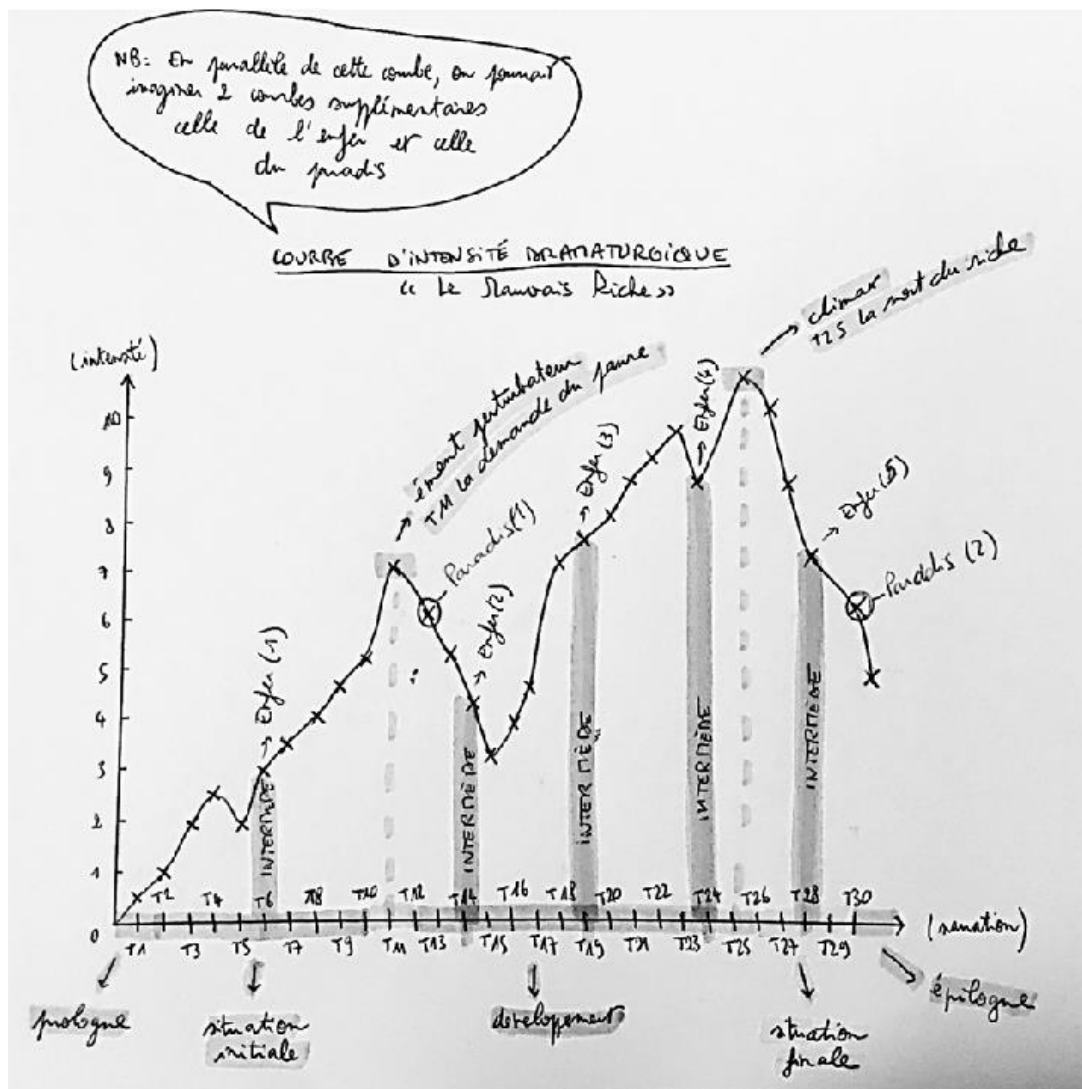 NB: En parallèle de cette courbe, on pourrait
imaginer 2 courbes supplémentaires
celle de l'enfer et celle
du paradis
COURBE D'INTENSITÉ DRAMATURGIQUE
"Le Mauvais Riche"
(intensité)
climax
T25 la mort du riche
ément perturbateur
T11 la demande du pauvre
Enfer (1)
Paradis (1)
Enfer (2)
Enfer (3)
Enfer (4)
Enfer (5)
Paradis (2)
10
9
8
7
6
5
4
3
2
1
0
INTERMÈDE
INTERMÈDE
INTERMÈDE
INTERMÈDE
INTERMÈDE
T2 T4 T6 T8 T10 T12 T14 T16 T18 T20 T22 T24 T26 T28 T30
T1 T3 T5 T7 T9 T11 T13 T15 T17 T19 T21 T23 T25 T27 T29
(narration)
prologue
situation
initiale
developpement
situation
finale
épilogue